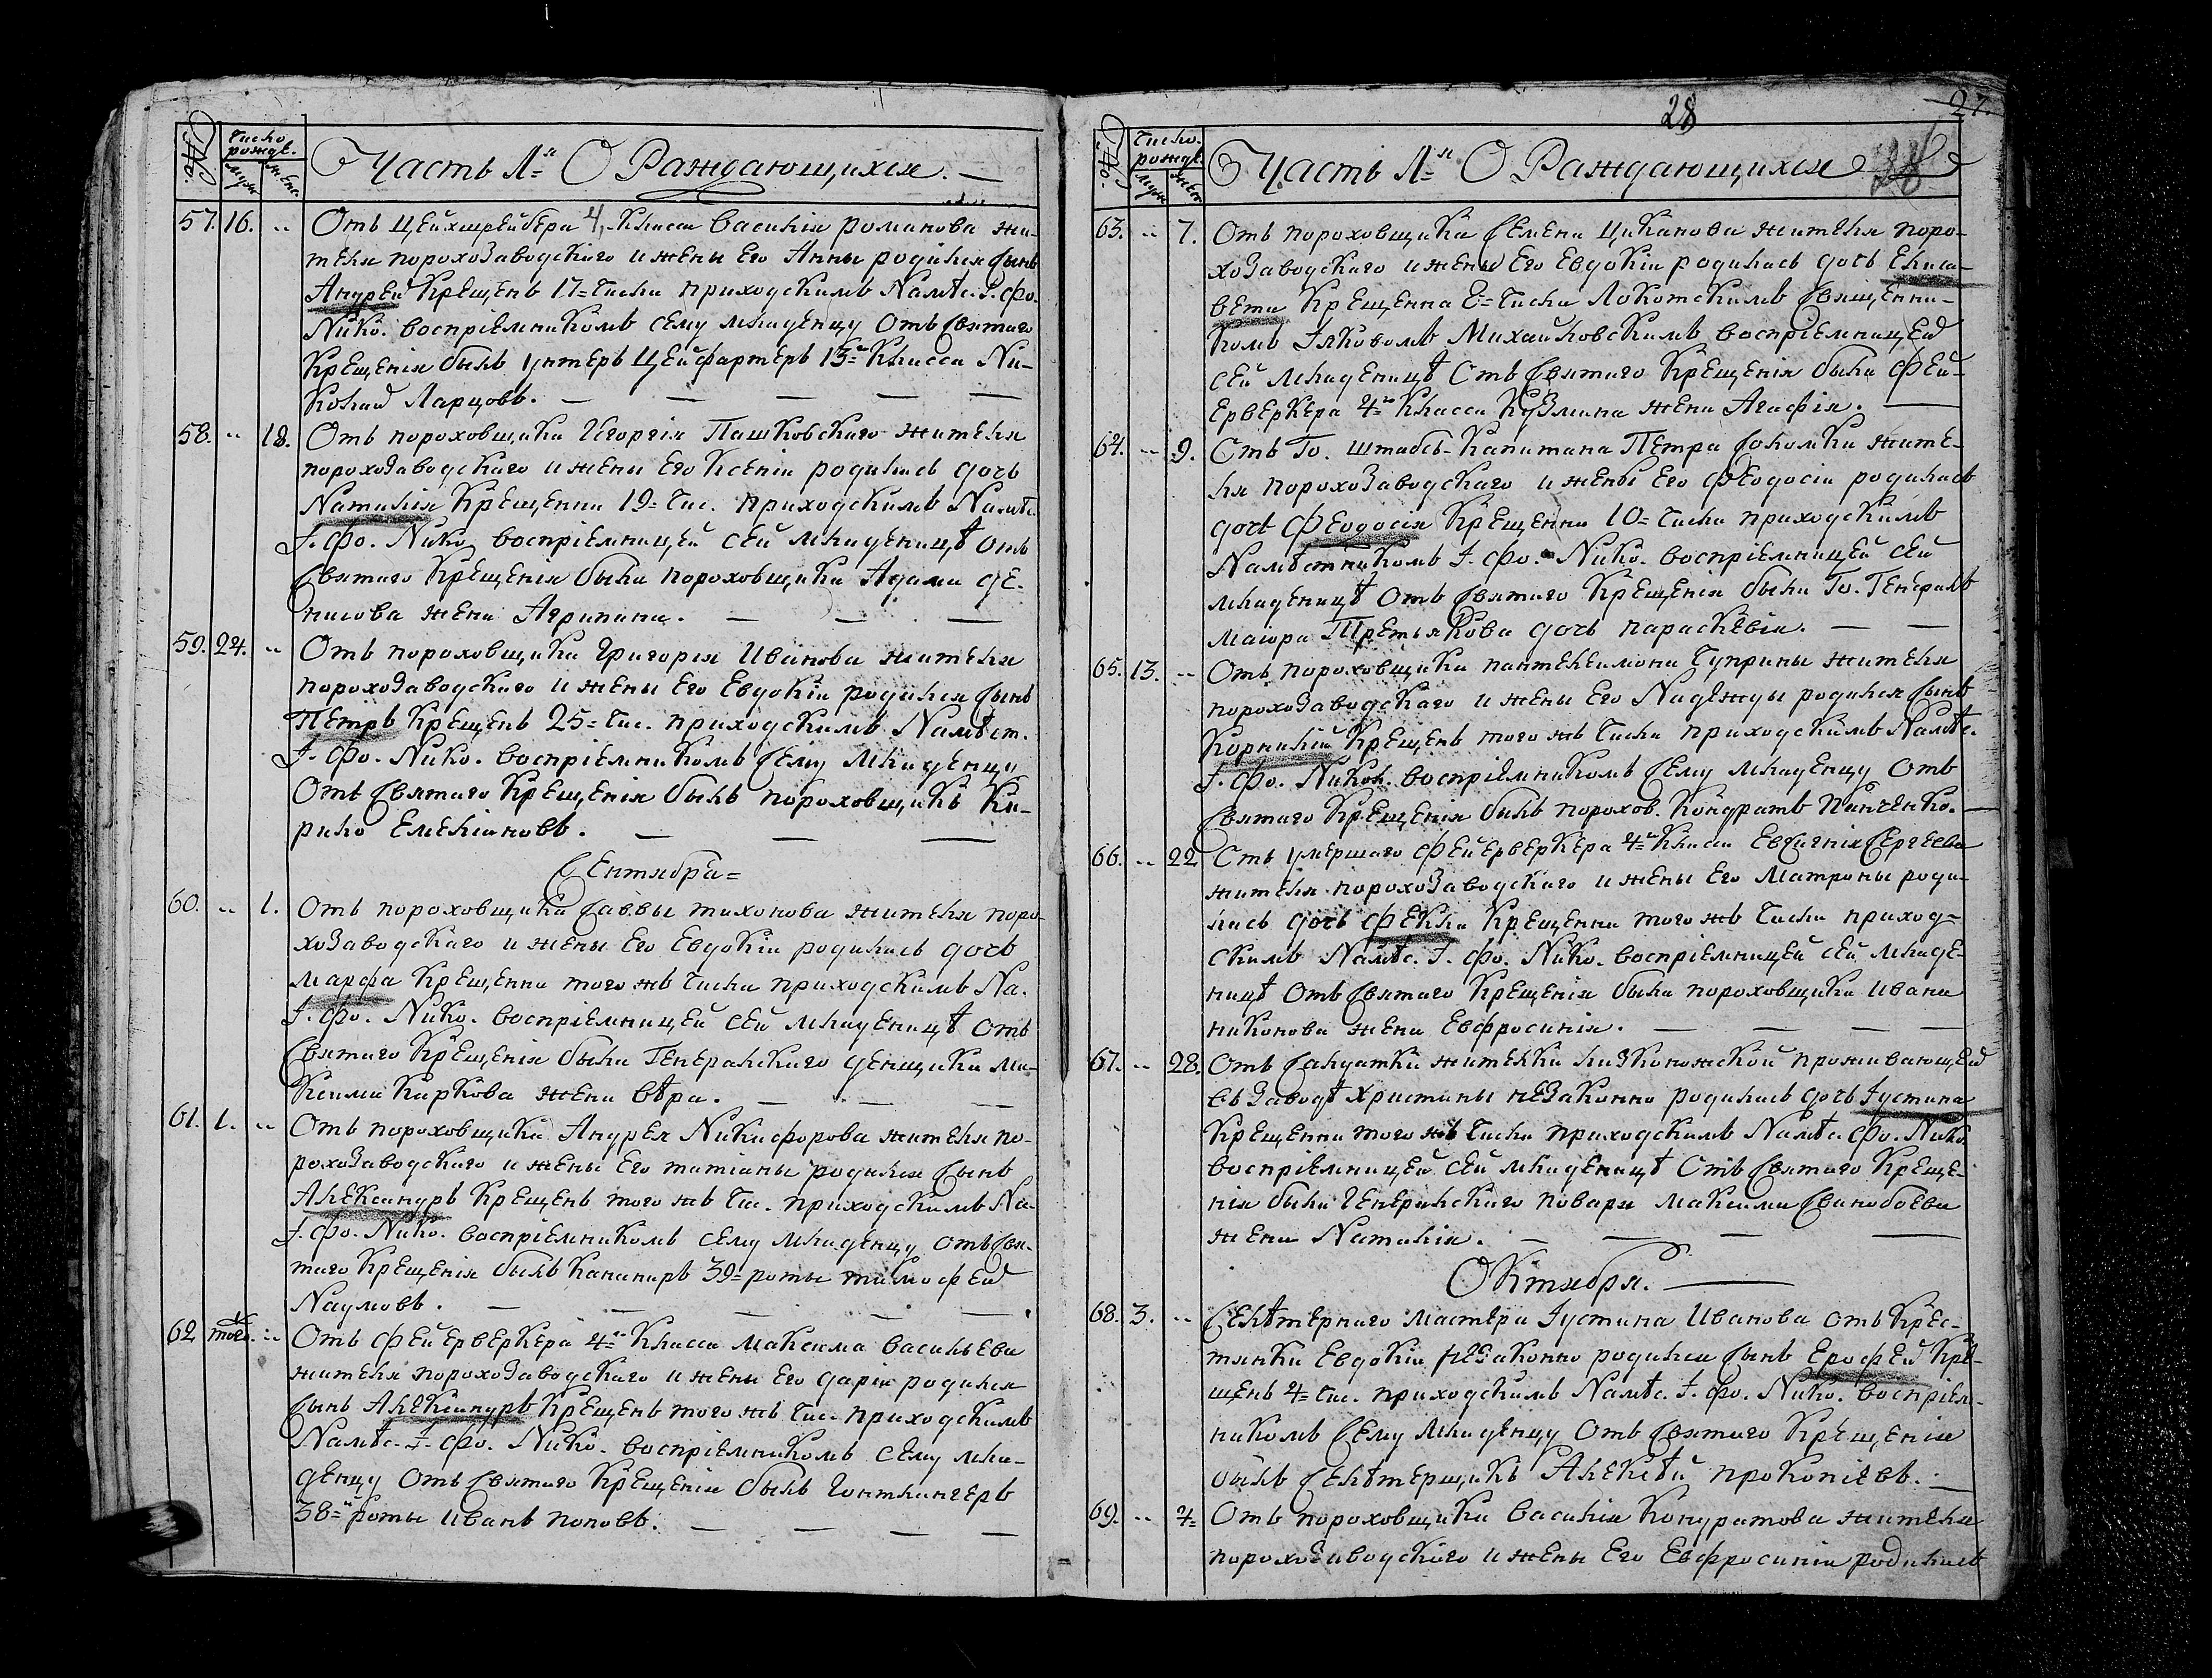 28
27.
№.
Число рожде.
муж.
женс.
Часть 1я О Раждающихся.
57. 16. „ Отъ Цейхшрейбера 4 Класса Василія романова жи-
теля пороХоЗаводскаго и жены Его Анны родился Сынъ
Андрей Крещенъ 17= Числа приходскимъ Намѣс. І. Фо.
Нико. воспріемникомъ сему младенцу Отъ Святаго
Крещенія былъ унтеръ Цейфартеръ 13й Класса Ни-
колай Ларцовъ.
58. „ 18. Отъ пороховщика Георгія Пашковскаго жителя
пороХоЗаводскаго и жены Его Ксеніи родилась дочь
Наталія Крещенна 19= Чис. приходскимъ Намѣс.
І. Фо. Нико. воспріемницей сей младеницѣ отъ
Святаго Крещенія была пороховщика Адама де-
нисова жена Агрипина.
59. 24. „ Отъ пороховщика Григорія Иванова жителя
пороХоЗаводскаго и жены Его Евдокіи родился Сынъ
Петръ Крещенъ 25= Чис. приходскимъ Намѣст.
І. Фо. Нико. воспріемникомъ Сему Младенцу
Отъ Святаго Крещенія былъ пороховщикъ Ки-
рило Емеліановъ.
Сентября=
60. „ 1. Отъ пороховщика Саввы тихонова жителя поро-
хоЗаводскаго и жены Его Евдокіи родилась дочь
Марфа Крещенна того жъ Числа приходскимъ На.
І. Фо. Нико. воспріемницей сей младеницѣ Отъ
Святаго Крещенія была Генеральскаго денщика Ма-
ксима Каркова жена вѣра.
61. 1. „ Отъ пороховщика Андрея Никифорова жителя по-
рохоЗаводскаго и жены Его татіаны родился Сынъ
Александръ Крещенъ того жъ Чис. приходскимъ На.
І. Фо. Нико. воспріемникомъ сему младенцу отъ Свя-
таго Крещенія былъ Канониръ 39= роты тимофей
Наумовъ.
62 того. „ Отъ Фейерверкера 4го Класса максима васильева
жителя пороХоЗаводскаго и жены Его даріи родился
Сынъ Александръ Крещенъ того жъ Чис. приходскимъ
Намѣс. І. Фо. Нико. воспріемникомъ сему мла-
денцу Отъ Святаго Крещенія былъ Гонтлангеръ
38й роты Иванъ поповъ.
№.
Число. рожде.
муж.
женс.
Часть 1я О Раждающихся
28
63. „ 7. Отъ пороховщика Семена Циканова жителя поро-
хоЗаводскаго и жены Его Евдокіи родилась дочь Елиса-
вета Крещенна 8= Числа Локотскимъ Священни-
комъ Іаковомъ Михайловскимъ воспріемницей
сей младеницѣ Отъ Святаго Крещенія была Фей-
ерверкера 4го Класса КуЗмина жена Агафія.
64. „ 9. Отъ Го. штабсъ-Капитана Петра Соколки жите-
ля пороХоЗаводскаго и жены Его Феодосіи родилась
дочь Феодосія Крещенна 10= Числа приходскимъ
Намѣстникомъ І. Фо. Нико. воспріемницей сей
младеницѣ Отъ Святаго Крещенія была Го. Генералъ
маіора Третьякова дочь параскевія.
65. 13. „ Отъ пороховщика пантелеимона Чуприны жителя
пороХоЗаводскаго и жены Его Надежды родился Сынъ
Корнилій Крещенъ того жъ Числа приходскимъ Намѣс.
І. Фо. Никол. воспріемникомъ Сему младенцу Отъ
Святаго Крещенія былъ порохов. Кондратъ Панченко.
66. „ 22 Отъ умершаго Фейерверкера 4го Класса Евгенія Сергеева
жителя пороХоЗаводскаго и жены Его Матроны роди-
лась дочь Фекла Крещенна того жъ Числа приход-
скимъ Намѣс. І. Фо. Нико. воспріемницей сей младе-
ницѣ Отъ Святаго Крещенія была пороховщика Ивана
никонова жена Евфросинія.
67. „ 28. Отъ Салдатки жительки проживающей
въ Заводѣ христины неЗаконно родилась дочь Іустина
Крещенна того жъ Числа приходскимъ Намѣс. Фо. Нико.
воспріемницей сей младеницѣ Отъ Святаго Креще-
нія была Генеральскаго повара максима Санобоева
жена Наталія.
Октября.
68. 3. „ Селѣтернаго мастера Іустина Иванова отъ Крес-
тянки Евдокіи неЗаконно родился Сынъ Ерофей Кре-
щенъ 4= Чис. приходскимъ Намѣс. І. Фо. Нико. воспріем-
никомъ Сему Младенцу Отъ Святаго Крещенія
былъ Селѣтерщикъ Алексѣй прокопіевъ.
69. „ 4= Отъ пороховщика василія Кондратова жителя
пороХоЗаводскаго и жены Его Евфросиніи родилась